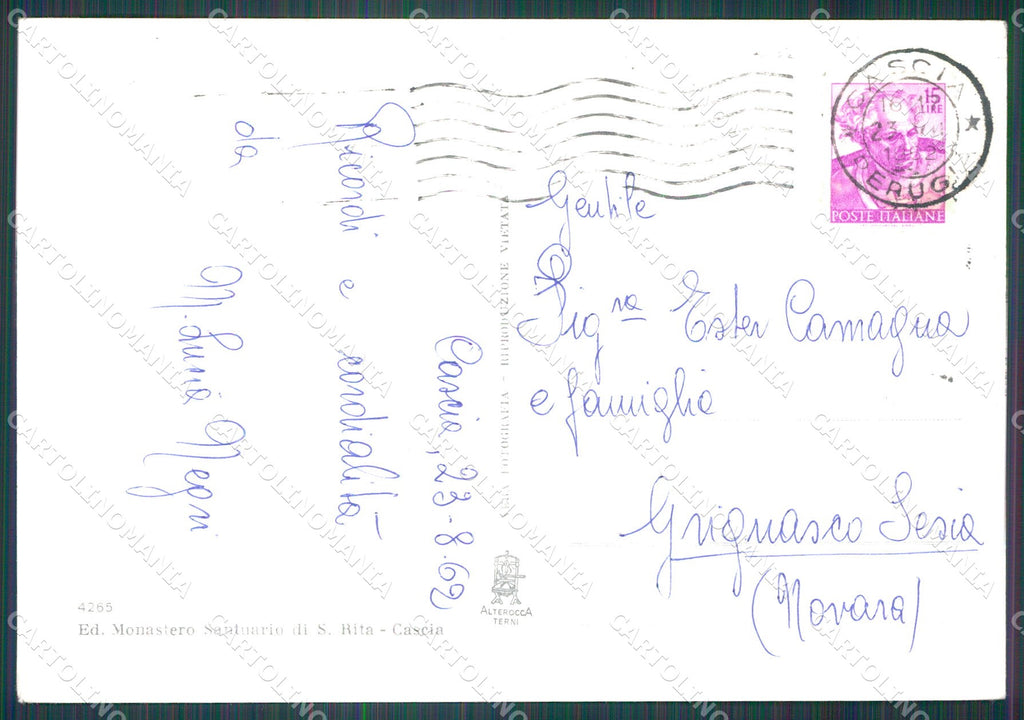 Cascia, 23-8.62
Ricordi e cordialità
da
M. Luisa Negri
Gentile
Sig.ra Ester Camagna
e famiglia
Grignasco Sesia
(Novara)
CASCIA
23
PERUGIA
15
LIRE
POSTE ITALIANE
FOTOGRAFIA - RIPRODUZIONE VIETATA
ALTEROCCA
TERNI
4265
Ed. Monastero Santuario di S. Rita - Cascia
CARTOLINOMANIA